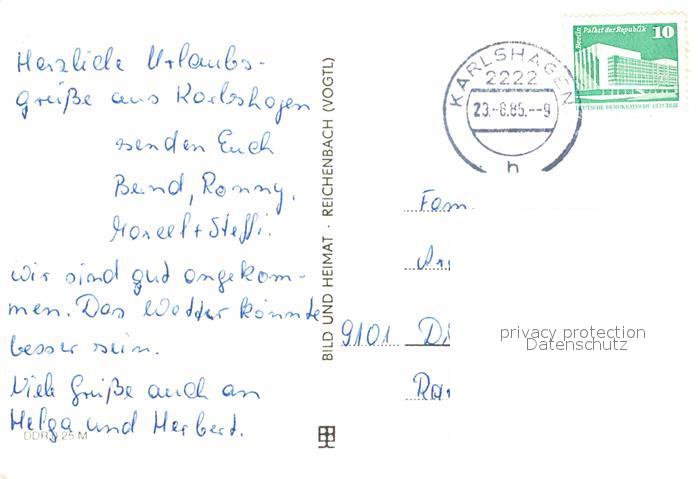 Herzliche Urlaubs-
grüße aus Karlshagen
senden Euch
Bernd, Ronny,
Marcel + Steffi.
wir sind gut angekom-
men. Das Wetter könnte
besser sein.
Viele Grüße auch an
Helga und Herbert.
DDR 0,25 M
BILD UND HEIMAT · REICHENBACH (VOGTL)
KARLSHAGEN
2222
23.-8.85.--9
h
Berlin Palast der Republik 10
DEUTSCHE DEMOKRATISCHE REPUBLIK
Fam.
9101
privacy protection
Datenschutz